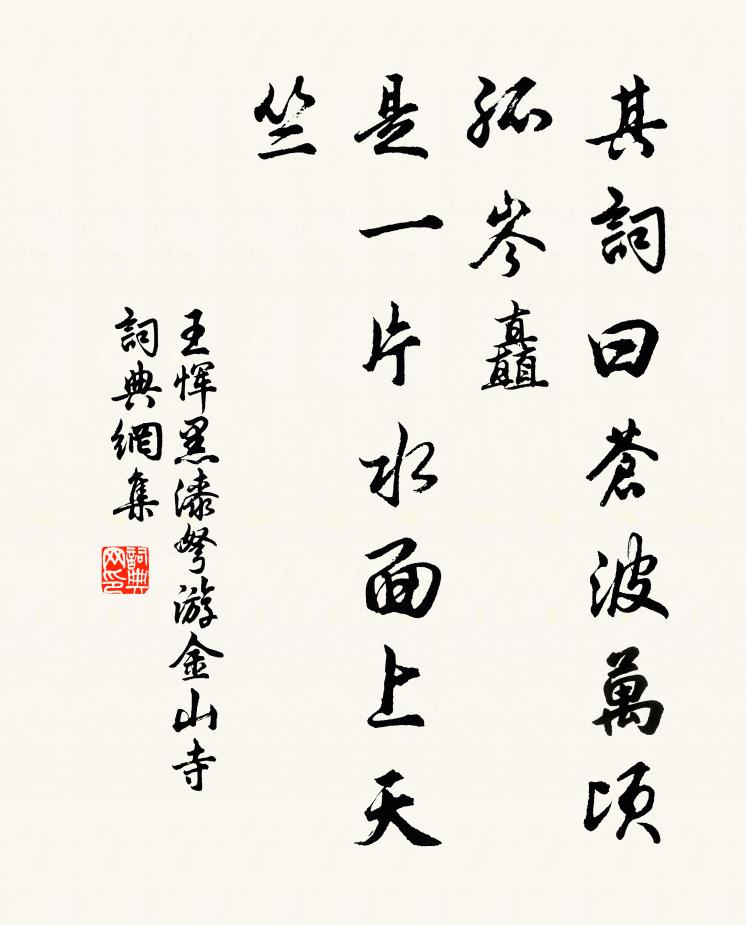 其詞曰蒼波萬頃
孤岑矗
是一片水面上天
竺
王惲黑漆弩游金山寺
詞典網集
詞典网印